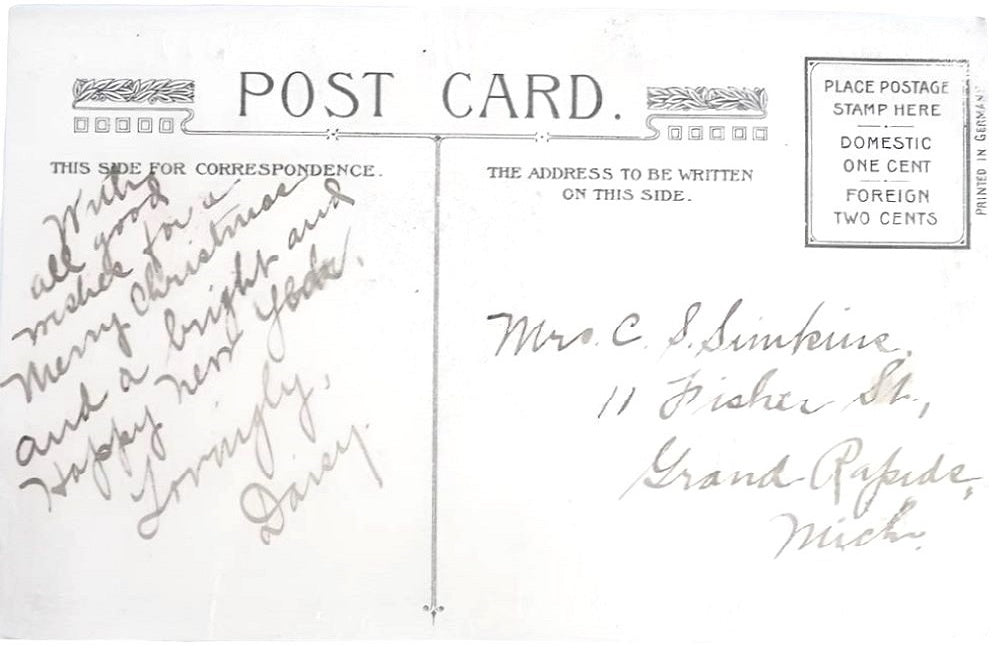 POST CARD.
THIS SIDE FOR CORRESPONDENCE.
With
all good
wishes for a
Merry Christmas
and a bright and
Happy New Year.
Lovingly,
Daisy.
THE ADDRESS TO BE WRITTEN
ON THIS SIDE.
PLACE POSTAGE
STAMP HERE
DOMESTIC
ONE CENT
FOREIGN
TWO CENTS
PRINTED IN GERMANY
Mrs. C. S. Simkins.
11 Fisher St.,
Grand Rapids,
Mich.